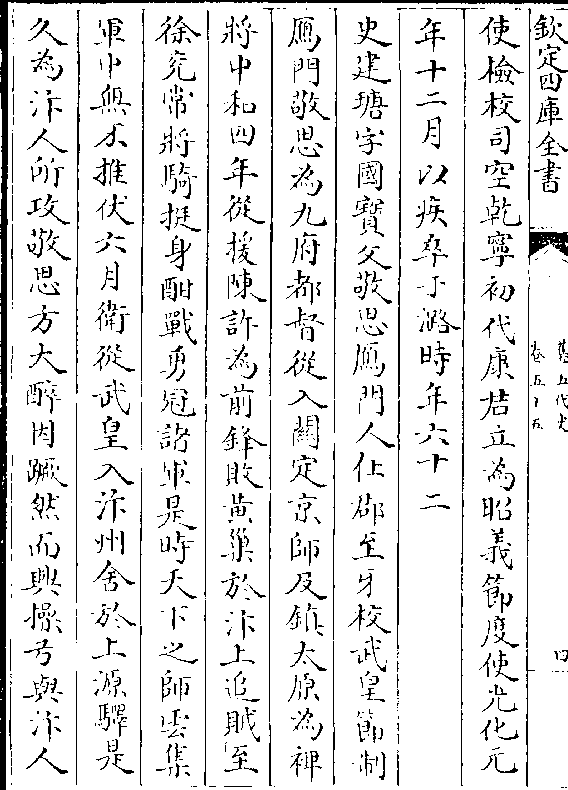 欽定四庫全書
舊五代史
卷五十五
四
使檢校司空乾寧初代康君立為昭義節度使光化元
年十二月以疾卒于潞時年六十二
史建瑭字國寶父敬思鴈門人仕郡至牙校武皇節制
鴈門敬思為九府都督從入關定京師及鎮太原為裨
將中和四年從援陳許為前鋒敗黄巢於汴上追賊至
徐兖常將騎挺身酣戰勇冠諸軍是時天下之師雲集
軍中無不推伏六月衛從武皇入汴州舍於上源驛是
久為汴人所攻敬思方大醉因蹶然而興操弓與汴人